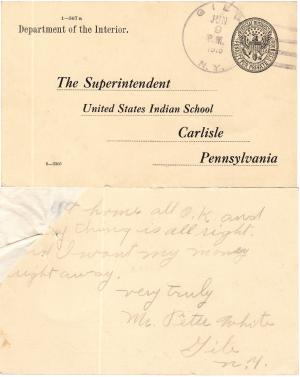 1-567a
Department of the Interior.
GILE
JUN
9
P.M.
N.Y.
The Superintendent
United States Indian School
Carlisle
Pennsylvania
home all O.K. and
thing is all right.
I want my money
right away.
very truly
Mr. Peter White
Gile
N.Y.